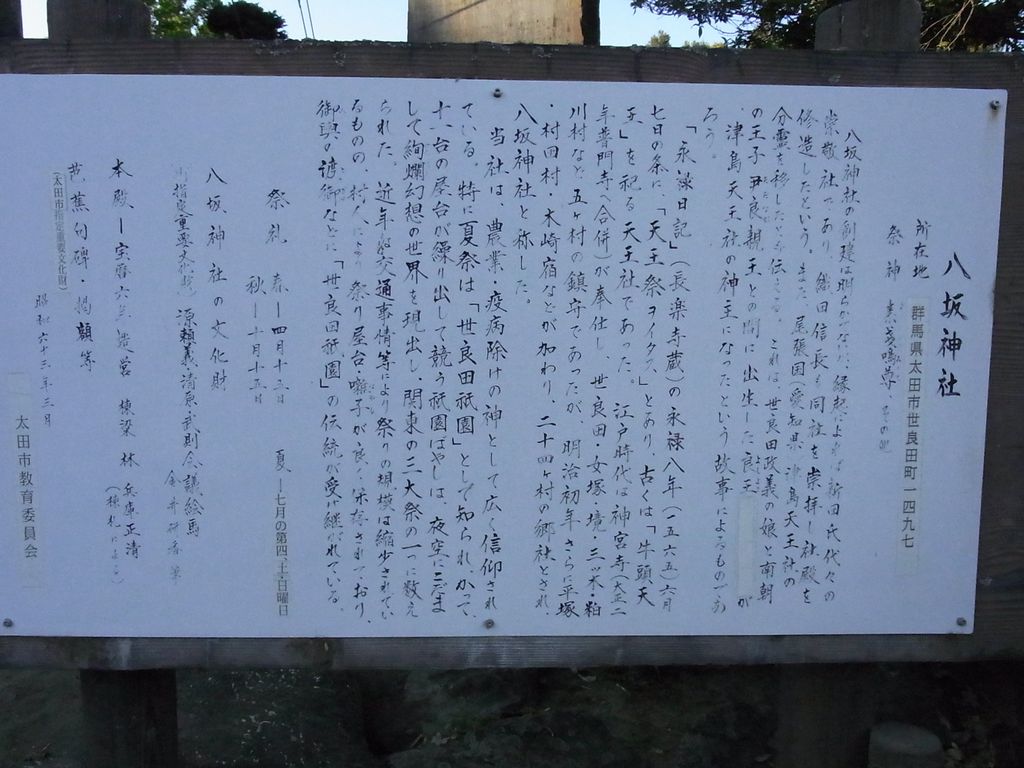 八坂神社
所在地 群馬県太田市世良田町一四九七
祭神 素戔嗚尊、その他
八坂神社の創建は明らかでないが、縁起によれば新田氏代々の
崇敬社であり、織田信長も同社を崇拝し社殿を
修造したという。また、尾張国(愛知県)津島天王社の
分霊を移したとも伝える。これは、世良田政義の娘と南朝
の王子尹良親王との間に出生した良王が
津島天王社の神主になったという故事によるものであ
ろう。
「永禄日記」(長楽寺蔵)の永禄八年(一五六五)六月
七日の条に、「天王祭ヲイタス」とあり、古くは「牛頭天
王」を祀る天王社であった。江戸時代は神宮寺(大正二
年普門寺へ合併)が奉仕し、世良田・女塚・境・三ツ木・粕
川村など五ヶ村の鎮守であったが、明治初年、さらに平塚
・村田村・木崎宿などが加わり、二十四ヶ村の郷社とされ、
八坂神社と称した。
当社は、農業・疫病除けの神として広く信仰され
ている。特に夏祭は「世良田祇園」として知られ、かつて、
十一台の屋台が繰り出して競う祇園ばやしは、夜空にこだま
して絢爛幻想の世界を現出し、関東の三大祭の一つに数え
られた。近年は交通事情等により祭りの規模は縮少されてい
るものの、村人により祭り屋台囃子が良く保存されており、
御輿の渡御などに「世良田祇園」の伝統が受け継がれている。
祭礼 春―四月十五日 夏―七月の第四土・日曜日
秋―十月十五日
八坂神社の文化財
(市指定重要文化財) 源頼義・清原武則会議絵馬
金井研香筆
本殿―宝暦六年造営 棟梁 林 兵庫正清
(棟札による)
芭蕉句碑・掲額等
(太田市指定重要文化財)
昭和六十三年三月
太田市教育委員会